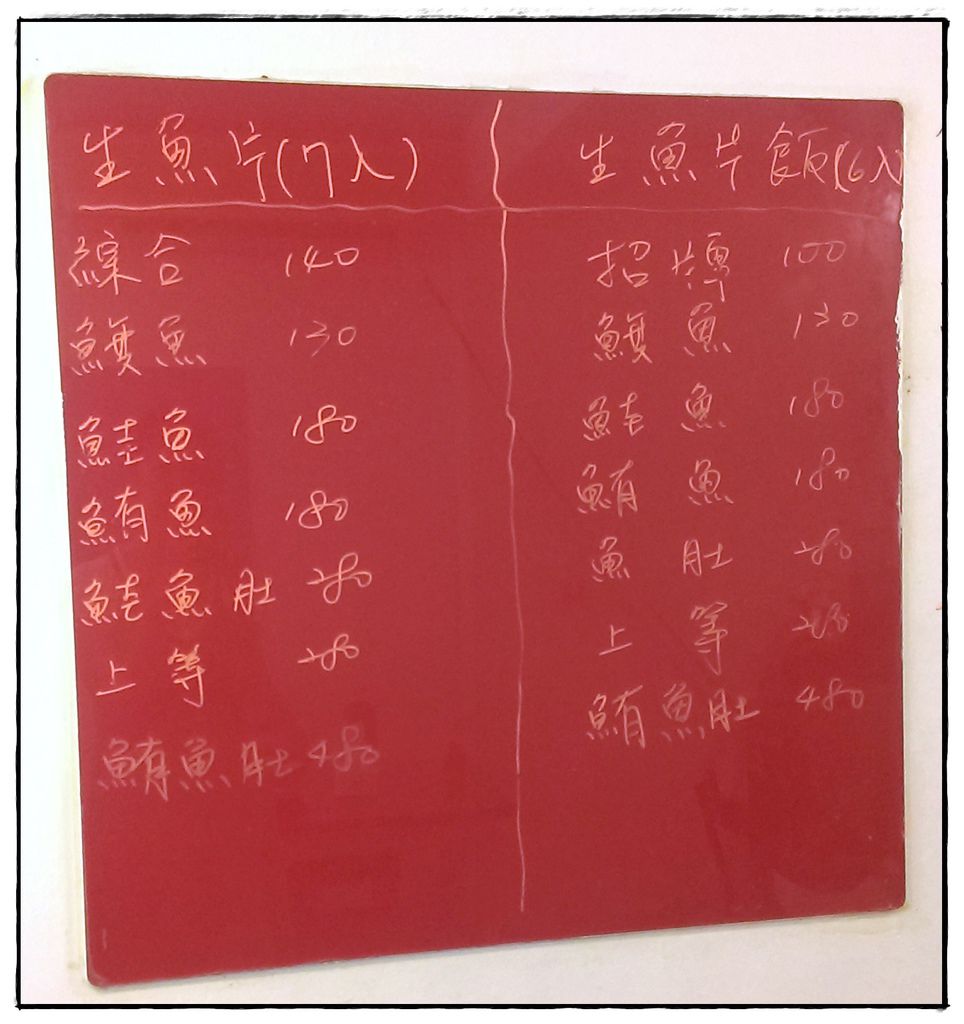 生魚片(7入)
綜合 140
鱻魚 130
鮭魚 180
鮪魚 180
鮭魚肚 280
上等 280
鮪魚肚 480
生魚片飯(6入)
招牌 100
魚 130
鮭魚 180
鮪魚 180
魚肚 280
上等 280
鮪魚肚 480